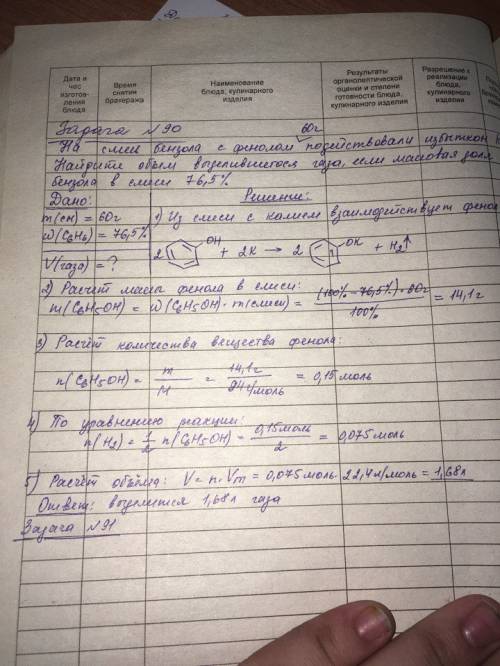 Дата и час изготов-ления блюда
Время снятия бракеража
Наименование блюда, кулинарного изделия
Результаты органолептической оценки и степени готовности блюда, кулинарного изделия
Разрешение к реализации блюда, кулинарного изделия
Задача №90 60г
На смесь бензола с фенолом подействовали избытком
Найдите объем выделившегося газа, если массовая дол
бензола в смеси 76,5%
Дано: Решение:
m(см) = 60г 1) Из смеси с калием взаимодействует фенол
ω(C6H6) = 76,5%
2 OH + 2K → 2 OK + H2↑
V(газа) = ?
2) Расчет массы фенола в смеси:
m(C6H5OH) = ω(C6H5OH) · m(смеси) = (100% - 76,5%) · 60г / 100% = 14,1г
3) Расчет количества вещества фенола:
n(C6H5OH) = m / M = 14,1г / 94г/моль = 0,15 моль
4) По уравнению реакции:
n(H2) = 1/2 n(C6H5OH) = 0,15моль / 2 = 0,075 моль
5) Расчёт объёма: V = n · Vm = 0,075моль · 22,4л/моль = 1,68л
Ответ: выделится 1,68л газа
Задача №91